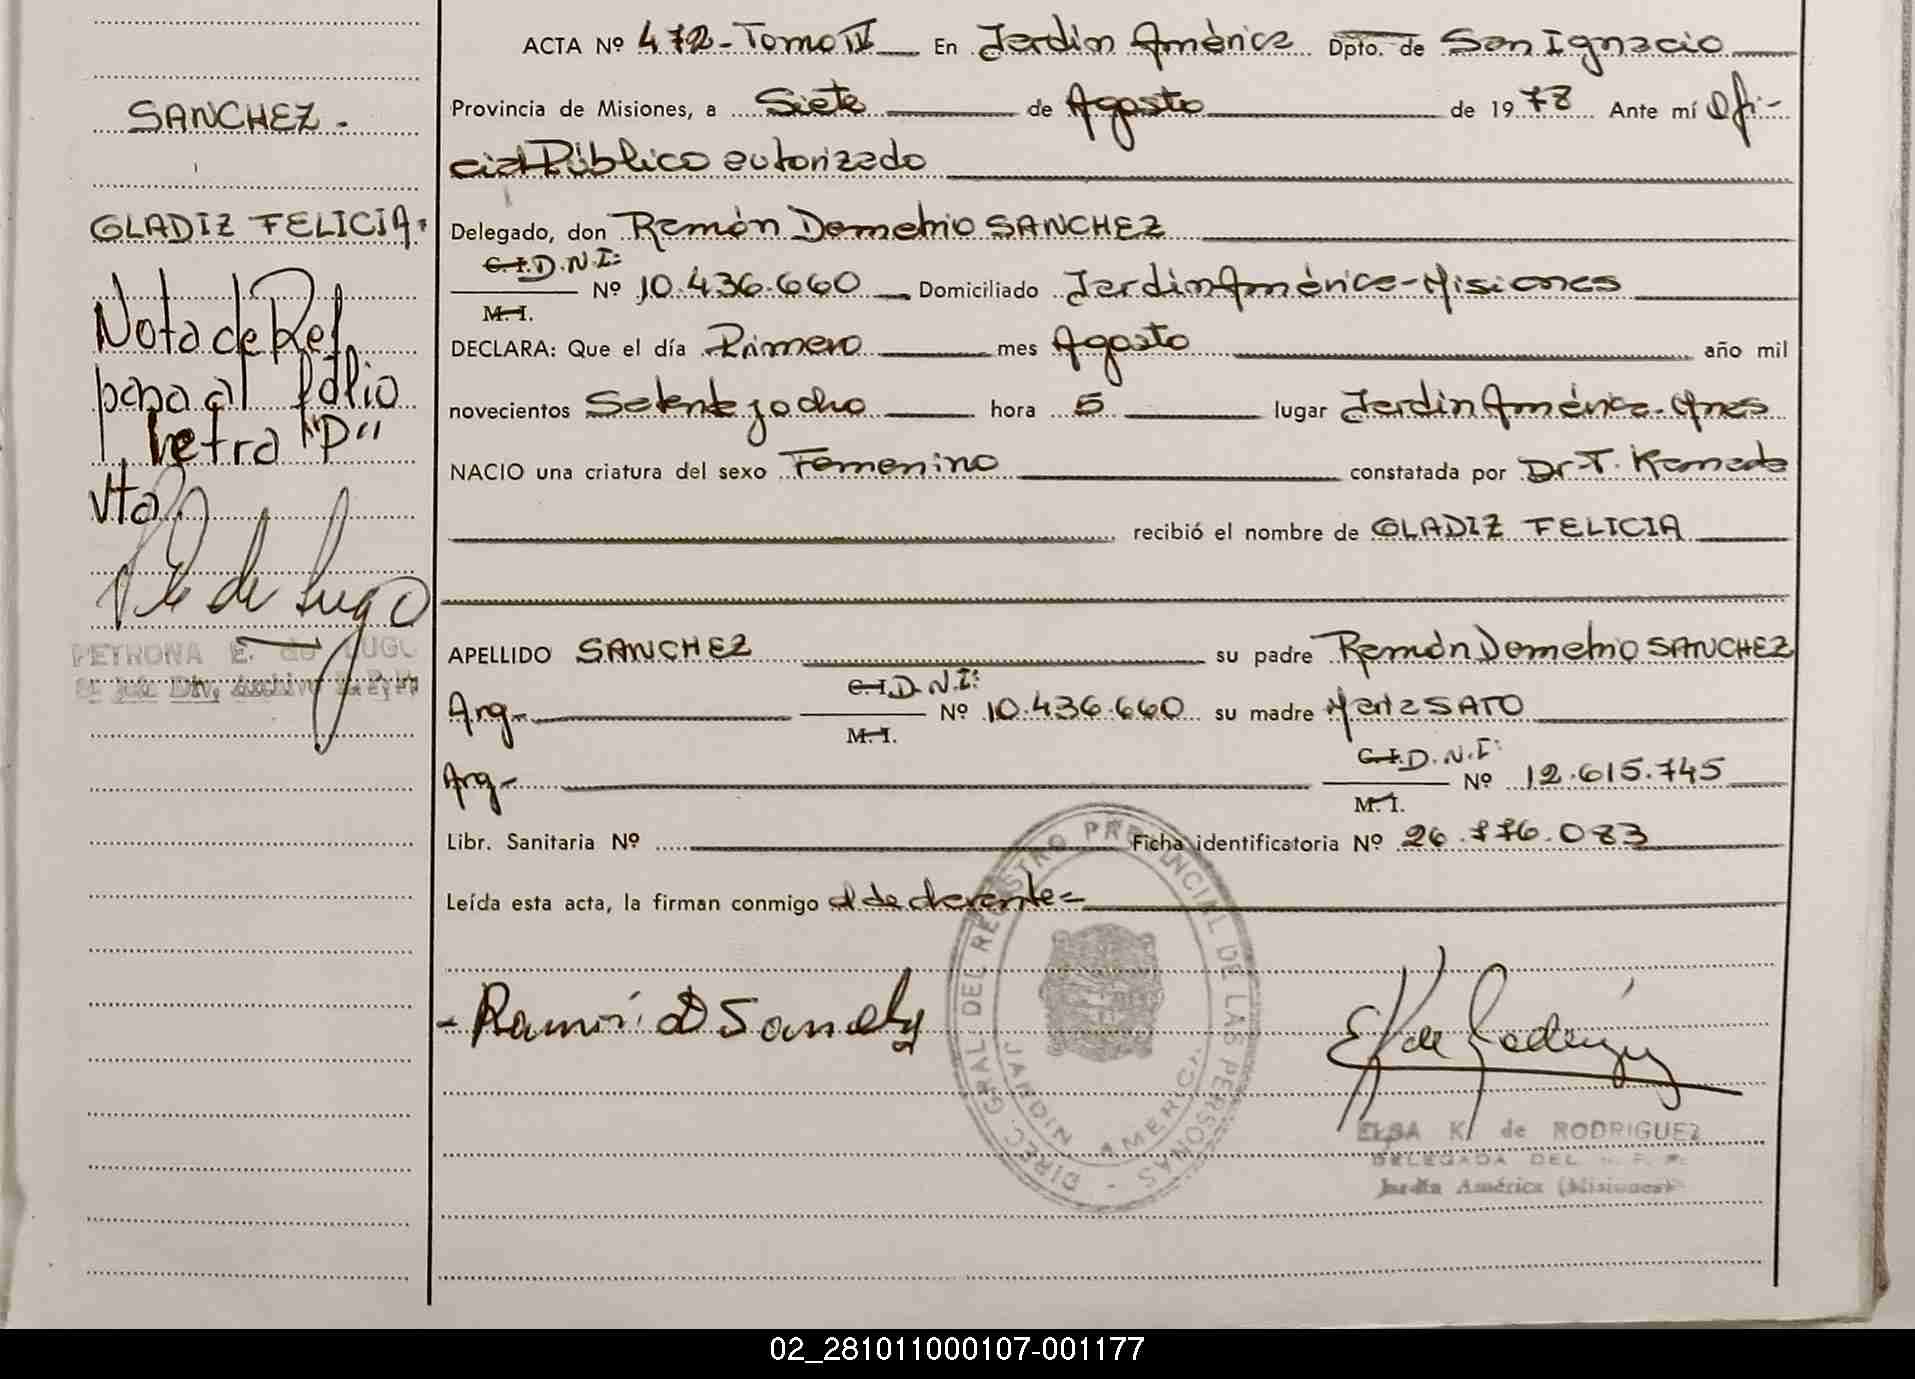 ACTA Nº 472 - Tomo IV En Jardín América Dpto. de San Ignacio
Provincia de Misiones, a Siete de Agosto de 1978 Ante mí Ofi-
cial Público autorizado
Delegado, don Ramón Demetrio SANCHEZ
C.I. D.N.I:
Nº 10.436.660 Domiciliado Jardín América - Misiones
M.I.
DECLARA: Que el día Primero mes Agosto año mil
novecientos Setenta y ocho hora 5 lugar Jardín América - Mnes
NACIO una criatura del sexo Femenino constatada por Dr T. Kameda
recibió el nombre de GLADIZ FELICIA
APELLIDO SANCHEZ su padre Ramón Demetrio SANCHEZ
Arg - C.I. D.N.I: M.I. Nº 10.436.660 su madre Marta SATO
Arg - C.I. D.N.I: M.I. Nº 12.615.745
Libr. Sanitaria Nº Ficha identificatoria Nº 26.776.083
Leída esta acta, la firman conmigo el declarante =
- Ramón D Sanchez
DIREC. GRAL DEL REGISTRO PROVINCIAL DE LAS PERSONAS -
JARDIN AMERICA
ELSA K. de RODRIGUEZ
DELEGADA DEL
Jardín América (Misiones)
SANCHEZ -
GLADIZ FELICIA
Nota de Ref
pasa al folio
1 letra "P"
vta
PETRONA E. de LUGO
02_281011000107-001177